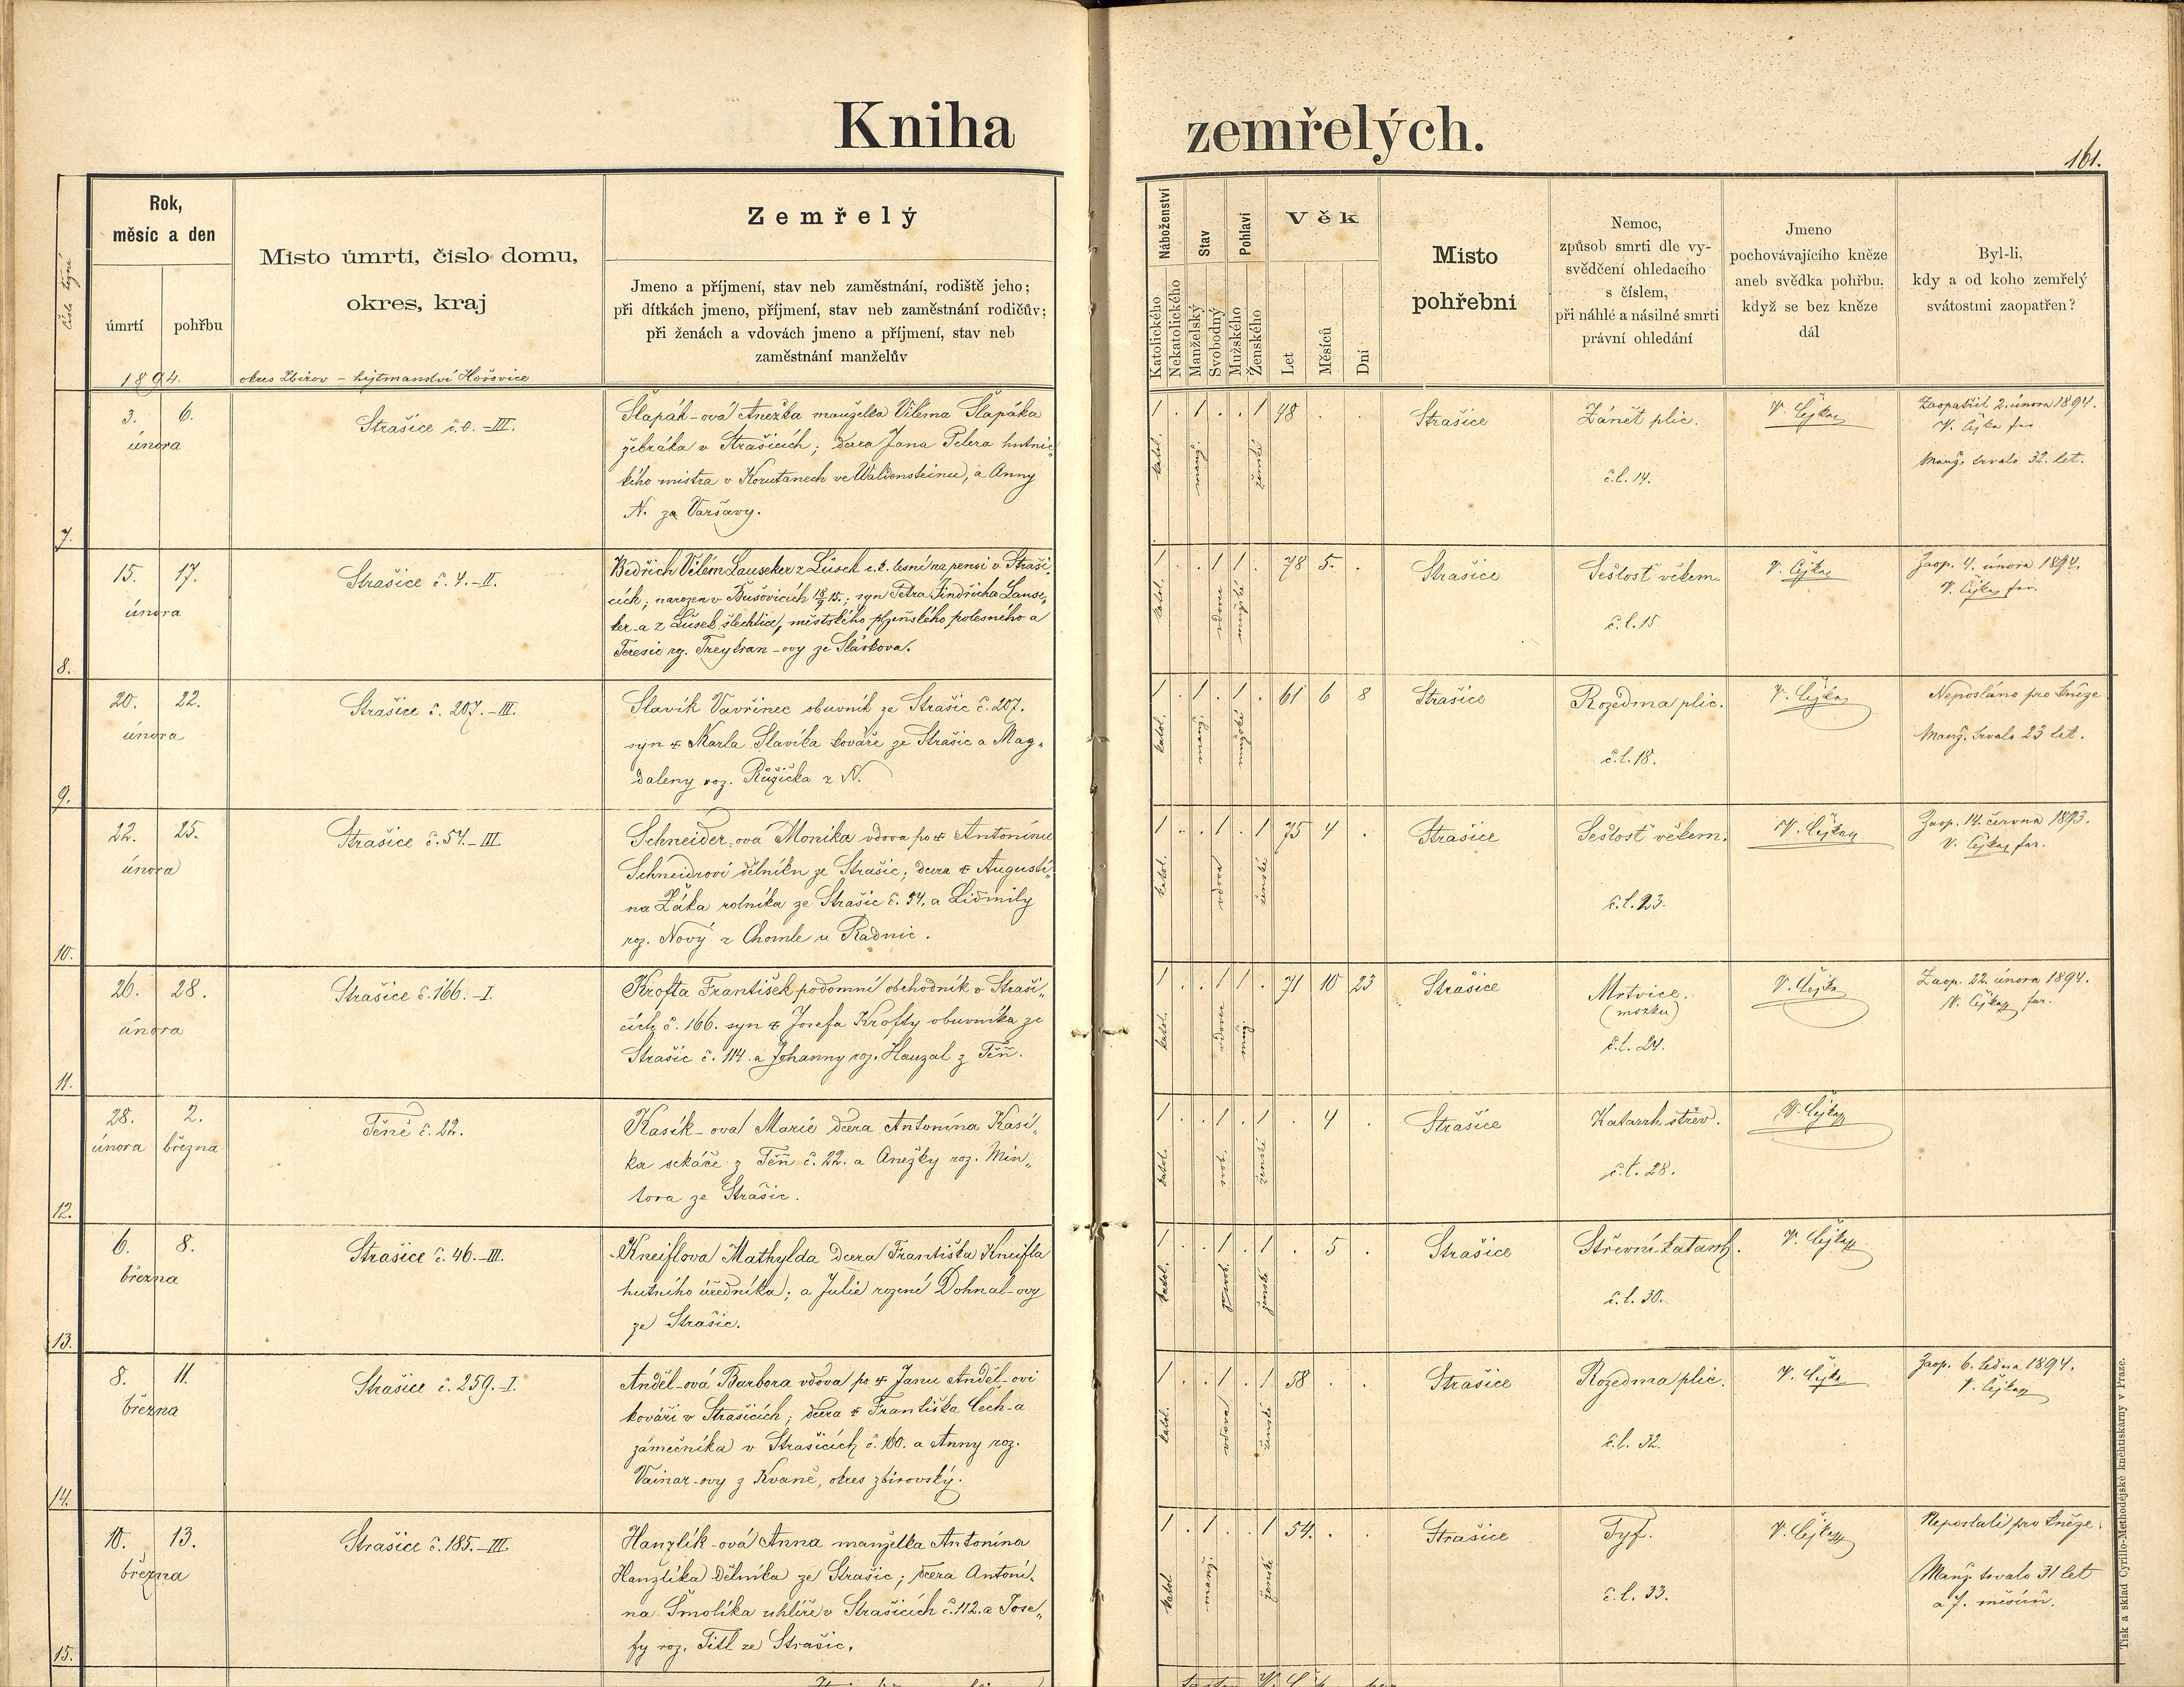 Kniha zemřelých.
161.
číslo běžné
Rok,
měsíc a den
úmrtí
pohřbu
1894.
Místo úmrtí, číslo domu,
okres, kraj
okres Zbirov – hejtmanství Hořovice
Zemřelý
Jmeno a příjmení, stav neb zaměstnání, rodiště jeho;
při dítkách jmeno, příjmení, stav neb zaměstnání rodičův;
při ženách a vdovách jmeno a příjmení, stav neb
zaměstnání manželův
Náboženství
Katolického
Nekatolického
Stav
Manželský
Svobodný
Pohlaví
Mužského
Ženského
Věk
Let
Měsíců
Dní
Místo
pohřební
Nemoc,
způsob smrti dle vy-
svědčení ohledacího
s číslem,
při náhlé a násilné smrti
právní ohledání
Jmeno
pochovávajícího kněze
aneb svědka pohřbu,
když se bez kněze
dál
Byl-li,
kdy a od koho zemřelý
svátostmi zaopatřen?
7.
3. 6.
února
Strašice č. 0. – III.
Šlapák-ová Anežka manželka Viléma Šlapáka
žebráka v Strašicích; dcera Jana Pelera hutnic„
kého mistra v Korutanech ve Waldensteinu, a Anny
N. za Varšavy.
1 . 1 . . 1 48 . .
katol. manž. ženské
Strašice
Zánět plic.
č.l. 14.
V. Čejka
Zaopatřil 2. února 1894.
V. Čejka far.
Manž. trvalo 32. let.
8.
15. 17.
února
Strašice č. 4. – II.
Bedřich Vilém Lauseker z Lúsek c.k. lesní na pensi v Straši„
cích; narozen v Bušovicích 18/9 15.; syn Petra Jindřicha Lause„
ker-a z Lúsek šlechtice, městského plzeňského polesného a
Teresie rz. Treytran-ovy ze Sláskova.
1 . . 1 1 . 78 5. .
katol. vdovec mužského
Strašice
Sešlosť věkem.
č.l. 15
V. Čejka
Zaop. 4. února 1894.
V. Čejka far.
9.
20. 22.
února
Strašice č. 207. – III.
Slavík Vavřinec obuvník ze Strašic č. 207.
syn ☩ Karla Slavíka kováře ze Strašic a Mag„
daleny roz. Růžička z N.
1 . 1 . 1 . 61 6 8
katol. manž. mužské
Strašice
Rozedma plic.
č.l. 18.
V. Čejka
Neposláno pro kněze
Manž. trvalo 23 let.
10.
22. 25.
února
Strašice č. 54. – III.
Schneider-ová Monika vdova po ☩ Antonínu
Schneidrovi dělníku ze Strašic; dcera ☩ Augustí„
na Žáka rolníka ze Strašic č. 54. a Lidmily
roz. Nový z Chomle u Radnic.
1 . . 1 . 1 75 4 .
katol. vdova ženské
Strašice
Sešlosť věkem.
č.l. 23.
V. Čejka
Zaop. 14. června 1893.
V. Čejka far.
11.
26. 28.
února
Strašice č. 166. – I.
Krofta František podomní obchodník v Straši„
cích č. 166. syn ☩ Josefa Krofty obuvníka ze
Strašic č. 114. a Johanny roz. Hauzal z Těň.
1 . . 1 1 . 71 10 23
katol. vdovec muž.
Strašice
Mrtvice.
(mozku)
č.l. 24.
V. Čejka
Zaop. 22. února 1894.
V. Čejka far.
12.
28. 2.
února března
Těně č. 22.
Kasík-ová Marie dcera Antonína Kasí„
ka sekáče z Těň č. 22. a Anežky roz. Min„
tora ze Strašic.
1 . . 1 . 1 . 4 .
katol. svob. ženské
Strašice
Katarrh střev.
č.l. 28.
V. Čejka
13.
6. 8.
března
Strašice č. 46. – III.
Kneiflova Mathylda dcera Františka Kneifla
hutního úředníka; a Julie rozené Dohnal-ovy
ze Strašic.
1 . . 1 . 1 . 5 .
katol. svob. ženské
Strašice
Střevní katarrh.
č.l. 30.
V. Čejka
14.
8. 11.
března
Strašice č. 259. – I.
Anděl-ová Barbora vdova po ☩ Janu Anděl-ovi
kováři v Strašicích; dcera ☩ Františka Čech-a
zámečníka v Strašicích č. 160. a Anny roz.
Vainar-ovy z Kvaně, okres zbirovský.
1 . . 1 . 1 58 . .
katol. vdova ženské
Strašice
Rozedma plic.
č.l. 32.
V. Čejka
Zaop. 6. ledna 1894.
V. Čejka
15.
10. 13.
března
Strašice č. 185. – III.
Hanzlík-ová Anna manželka Antonína
Hanzlíka dělníka ze Strašic; dcera Antoní„
na Smolíka uhlíře v Strašicích č. 112. a Jose„
fy roz. Titl ze Strašic.
1 . 1 . . 1 54. . .
katol manž. ženské
Strašice
Tyf.
č.l. 33.
V. Čejka
Neposlali pro kněze.
Manž. trvalo 31 let
a 7. měsíců.
Tisk a sklad Cyrillo-Methodějské knihtiskárny v Praze.